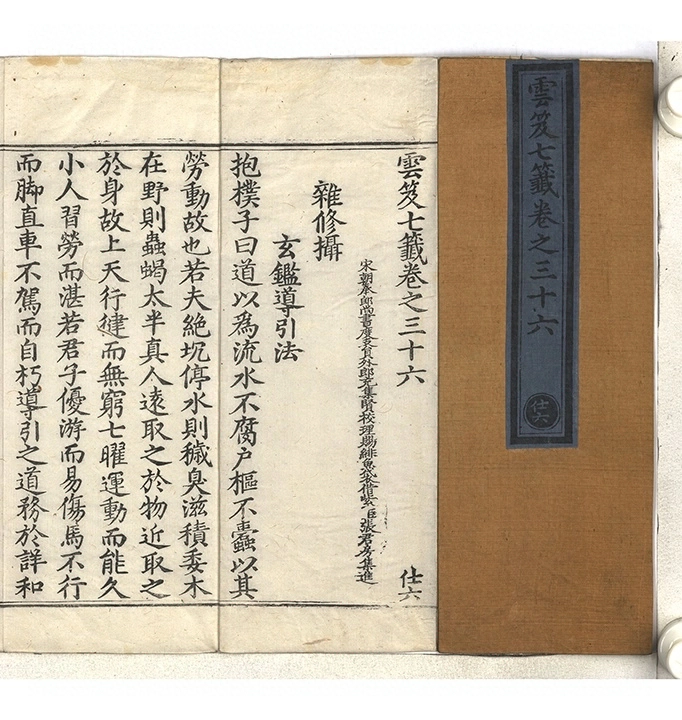 雲笈七籤卷之三十六
仕六
雲笈七籤卷之三十六 仕六
宋朝奉郎尚書度支員外郎充集賢校理賜緋魚袋借紫臣張君房集進
雜修攝
玄鑑導引法
抱樸子曰道以為流水不腐户樞不蠹以其
勞動故也若夫絶坑停水則穢臭滋積委木
在野則蟲蝎太半真人遠取之於物近取之
於身故上天行健而無窮七曜運動而能久
小人習勞而湛若君子優游而易傷馬不行
而脚直車不駕而自朽導引之道務於詳和